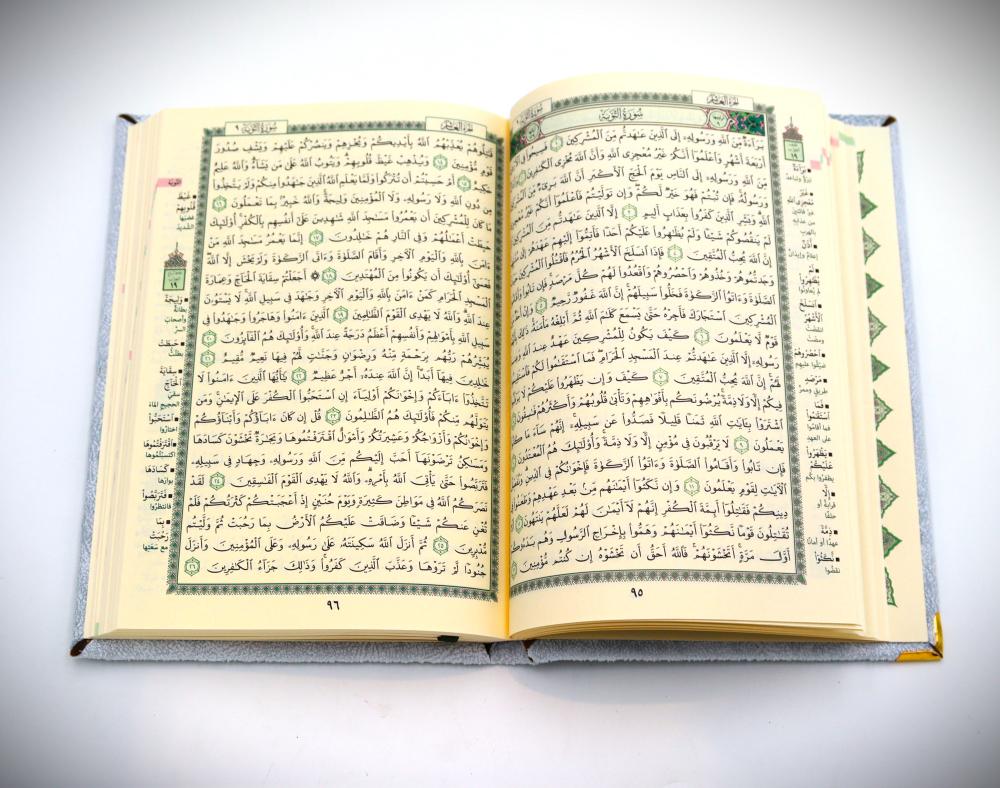 الجُزْءُ العَاشِرُ سُورَةُ التَّوْبَةِ
سُورَةُ التَّوْبَةِ
بَرَآءَةٌ مِّنَ ٱللَّهِ وَرَسُولِهِۦٓ إِلَى ٱلَّذِينَ عَـٰهَدتُّم مِّنَ ٱلْمُشْرِكِينَ ١ فَسِيحُوا۟ فِى
أَرْبَعَةَ أَشْهُرٍ وَٱعْلَمُوٓا۟ أَنَّكُمْ غَيْرُ مُعْجِزِى ٱللَّهِ وَأَنَّ ٱللَّهَ مُخْزِى ٱلْكَـٰفِرِينَ ٢
مِّنَ ٱللَّهِ وَرَسُولِهِۦٓ إِلَى ٱلنَّاسِ يَوْمَ ٱلْحَجِّ ٱلْأَكْبَرِ أَنَّ ٱللَّهَ بَرِىٓءٌ مِّنَ
وَرَسُولُهُۥ فَإِن تُبْتُمْ فَهُوَ خَيْرٌ لَّكُمْ وَإِن تَوَلَّيْتُمْ فَٱعْلَمُوٓا۟ أَنَّكُمْ غَيْرُ مُعْجِزِى
ٱللَّهِ وَبَشِّرِ ٱلَّذِينَ كَفَرُوا۟ بِعَذَابٍ أَلِيمٍ ٣ إِلَّا ٱلَّذِينَ عَـٰهَدتُّم مِّنَ
لَمْ يَنقُصُوكُمْ شَيْـًٔا وَلَمْ يُظَـٰهِرُوا۟ عَلَيْكُمْ أَحَدًا فَأَتِمُّوٓا۟ إِلَيْهِمْ عَهْدَهُمْ إِلَىٰ
إِنَّ ٱللَّهَ يُحِبُّ ٱلْمُتَّقِينَ ٤ فَإِذَا ٱنسَلَخَ ٱلْأَشْهُرُ ٱلْحُرُمُ فَٱقْتُلُوا۟ ٱلْمُشْرِكِينَ
وَجَدتُّمُوهُمْ وَخُذُوهُمْ وَٱحْصُرُوهُمْ وَٱقْعُدُوا۟ لَهُمْ كُلَّ مَرْصَدٍ فَإِن تَابُوا۟
ٱلصَّلَوٰةَ وَءَاتَوُا۟ ٱلزَّكَوٰةَ فَخَلُّوا۟ سَبِيلَهُمْ إِنَّ ٱللَّهَ غَفُورٌ رَّحِيمٌ ٥ وَإِنْ أَحَدٌ
ٱلْمُشْرِكِينَ ٱسْتَجَارَكَ فَأَجِرْهُ حَتَّىٰ يَسْمَعَ كَلَـٰمَ ٱللَّهِ ثُمَّ أَبْلِغْهُ مَأْمَنَهُۥ ذَٰلِكَ
قَوْمٌ لَّا يَعْلَمُونَ ٦ كَيْفَ يَكُونُ لِلْمُشْرِكِينَ عَهْدٌ عِندَ ٱللَّهِ وَعِندَ
رَسُولِهِۦٓ إِلَّا ٱلَّذِينَ عَـٰهَدتُّمْ عِندَ ٱلْمَسْجِدِ ٱلْحَرَامِ فَمَا ٱسْتَقَـٰمُوا۟ لَكُمْ فَٱسْتَقِيمُوا۟
لَهُمْ إِنَّ ٱللَّهَ يُحِبُّ ٱلْمُتَّقِينَ ٧ كَيْفَ وَإِن يَظْهَرُوا۟ عَلَيْكُمْ لَا يَرْقُبُوا۟
فِيكُمْ إِلًّا وَلَا ذِمَّةً يُرْضُونَكُم بِأَفْوَٰهِهِمْ وَتَأْبَىٰ قُلُوبُهُمْ وَأَكْثَرُهُمْ فَـٰسِقُونَ ٨
ٱشْتَرَوْا۟ بِـَٔايَـٰتِ ٱللَّهِ ثَمَنًا قَلِيلًا فَصَدُّوا۟ عَن سَبِيلِهِۦٓ إِنَّهُمْ سَآءَ مَا كَانُوا۟
يَعْمَلُونَ ٩ لَا يَرْقُبُونَ فِى مُؤْمِنٍ إِلًّا وَلَا ذِمَّةً وَأُو۟لَـٰٓئِكَ هُمُ ٱلْمُعْتَدُونَ
فَإِن تَابُوا۟ وَأَقَامُوا۟ ٱلصَّلَوٰةَ وَءَاتَوُا۟ ٱلزَّكَوٰةَ فَإِخْوَٰنُكُمْ فِى ٱلدِّينِ وَنُفَصِّلُ
ٱلْـَٔايَـٰتِ لِقَوْمٍ يَعْلَمُونَ ١١ وَإِن نَّكَثُوٓا۟ أَيْمَـٰنَهُم مِّنۢ بَعْدِ عَهْدِهِمْ وَطَعَنُوا۟
دِينِكُمْ فَقَـٰتِلُوٓا۟ أَئِمَّةَ ٱلْكُفْرِ إِنَّهُمْ لَآ أَيْمَـٰنَ لَهُمْ لَعَلَّهُمْ يَنتَهُونَ ١٢
تُقَـٰتِلُونَ قَوْمًا نَّكَثُوٓا۟ أَيْمَـٰنَهُمْ وَهَمُّوا۟ بِإِخْرَاجِ ٱلرَّسُولِ وَهُم بَدَءُوكُمْ
أَوَّلَ مَرَّةٍ أَتَخْشَوْنَهُمْ فَٱللَّهُ أَحَقُّ أَن تَخْشَوْهُ إِن كُنتُم مُّؤْمِنِينَ ١٣
٩٥
بَرَآءَةٌ
غَيْرُ مُعْجِزِى ٱللَّهِ
أَذَٰنٌ
لَمْ يُظَـٰهِرُوا۟
ٱنسَلَخَ ٱلْأَشْهُرُ
ٱحْصُرُوهُمْ
مَرْصَدٍ
فَمَا ٱسْتَقَـٰمُوا۟
يَظْهَرُوا۟ عَلَيْكُمْ
إِلًّا
ذِمَّةً
نَّكَثُوٓا۟
نقضوا
الجُزْءُ العَاشِرُ سُورَةُ التَّوْبَةِ ٩
قَـٰتِلُوهُمْ يُعَذِّبْهُمُ ٱللَّهُ بِأَيْدِيكُمْ وَيُخْزِهِمْ وَيَنصُرْكُمْ عَلَيْهِمْ وَيَشْفِ صُدُورَ
قَوْمٍ مُّؤْمِنِينَ ١٤ وَيُذْهِبْ غَيْظَ قُلُوبِهِمْ وَيَتُوبُ ٱللَّهُ عَلَىٰ مَن يَشَآءُ وَٱللَّهُ عَلِيمٌ
حَكِيمٌ ١٥ أَمْ حَسِبْتُمْ أَن تُتْرَكُوا۟ وَلَمَّا يَعْلَمِ ٱللَّهُ ٱلَّذِينَ جَـٰهَدُوا۟ مِنكُمْ وَلَمْ يَتَّخِذُوا۟
مِن دُونِ ٱللَّهِ وَلَا رَسُولِهِۦ وَلَا ٱلْمُؤْمِنِينَ وَلِيجَةً وَٱللَّهُ خَبِيرٌۢ بِمَا تَعْمَلُونَ ١٦
مَا كَانَ لِلْمُشْرِكِينَ أَن يَعْمُرُوا۟ مَسَـٰجِدَ ٱللَّهِ شَـٰهِدِينَ عَلَىٰٓ أَنفُسِهِم بِٱلْكُفْرِ أُو۟لَـٰٓئِكَ
حَبِطَتْ أَعْمَـٰلُهُمْ وَفِى ٱلنَّارِ هُمْ خَـٰلِدُونَ ١٧ إِنَّمَا يَعْمُرُ مَسَـٰجِدَ ٱللَّهِ مَنْ
ءَامَنَ بِٱللَّهِ وَٱلْيَوْمِ ٱلْـَٔاخِرِ وَأَقَامَ ٱلصَّلَوٰةَ وَءَاتَى ٱلزَّكَوٰةَ وَلَمْ يَخْشَ إِلَّا ٱللَّهَ
فَعَسَىٰٓ أُو۟لَـٰٓئِكَ أَن يَكُونُوا۟ مِنَ ٱلْمُهْتَدِينَ ١٨ ۞ أَجَعَلْتُمْ سِقَايَةَ ٱلْحَآجِّ وَعِمَارَةَ
ٱلْمَسْجِدِ ٱلْحَرَامِ كَمَنْ ءَامَنَ بِٱللَّهِ وَٱلْيَوْمِ ٱلْـَٔاخِرِ وَجَـٰهَدَ فِى سَبِيلِ ٱللَّهِ لَا يَسْتَوُۥنَ
عِندَ ٱللَّهِ وَٱللَّهُ لَا يَهْدِى ٱلْقَوْمَ ٱلظَّـٰلِمِينَ ١٩ ٱلَّذِينَ ءَامَنُوا۟ وَهَاجَرُوا۟ وَجَـٰهَدُوا۟ فِى
سَبِيلِ ٱللَّهِ بِأَمْوَٰلِهِمْ وَأَنفُسِهِمْ أَعْظَمُ دَرَجَةً عِندَ ٱللَّهِ وَأُو۟لَـٰٓئِكَ هُمُ ٱلْفَآئِزُونَ ٢٠
يُبَشِّرُهُمْ رَبُّهُم بِرَحْمَةٍ مِّنْهُ وَرِضْوَٰنٍ وَجَنَّـٰتٍ لَّهُمْ فِيهَا نَعِيمٌ مُّقِيمٌ ٢١
خَـٰلِدِينَ فِيهَآ أَبَدًا إِنَّ ٱللَّهَ عِندَهُۥٓ أَجْرٌ عَظِيمٌ ٢٢ يَـٰٓأَيُّهَا ٱلَّذِينَ ءَامَنُوا۟ لَا
تَتَّخِذُوٓا۟ ءَابَآءَكُمْ وَإِخْوَٰنَكُمْ أَوْلِيَآءَ إِنِ ٱسْتَحَبُّوا۟ ٱلْكُفْرَ عَلَى ٱلْإِيمَـٰنِ وَمَن
يَتَوَلَّهُم مِّنكُمْ فَأُو۟لَـٰٓئِكَ هُمُ ٱلظَّـٰلِمُونَ ٢٣ قُلْ إِن كَانَ ءَابَآؤُكُمْ وَأَبْنَآؤُكُمْ
وَإِخْوَٰنُكُمْ وَأَزْوَٰجُكُمْ وَعَشِيرَتُكُمْ وَأَمْوَٰلٌ ٱقْتَرَفْتُمُوهَا وَتِجَـٰرَةٌ تَخْشَوْنَ كَسَادَهَا
وَمَسَـٰكِنُ تَرْضَوْنَهَآ أَحَبَّ إِلَيْكُم مِّنَ ٱللَّهِ وَرَسُولِهِۦ وَجِهَادٍ فِى سَبِيلِهِۦ
فَتَرَبَّصُوا۟ حَتَّىٰ يَأْتِىَ ٱللَّهُ بِأَمْرِهِۦ وَٱللَّهُ لَا يَهْدِى ٱلْقَوْمَ ٱلْفَـٰسِقِينَ ٢٤ لَقَدْ
نَصَرَكُمُ ٱللَّهُ فِى مَوَاطِنَ كَثِيرَةٍ وَيَوْمَ حُنَيْنٍ إِذْ أَعْجَبَتْكُمْ كَثْرَتُكُمْ فَلَمْ
تُغْنِ عَنكُمْ شَيْـًٔا وَضَاقَتْ عَلَيْكُمُ ٱلْأَرْضُ بِمَا رَحُبَتْ ثُمَّ وَلَّيْتُم
مُّدْبِرِينَ ٢٥ ثُمَّ أَنزَلَ ٱللَّهُ سَكِينَتَهُۥ عَلَىٰ رَسُولِهِۦ وَعَلَى ٱلْمُؤْمِنِينَ وَأَنزَلَ
جُنُودًا لَّمْ تَرَوْهَا وَعَذَّبَ ٱلَّذِينَ كَفَرُوا۟ وَذَٰلِكَ جَزَآءُ ٱلْكَـٰفِرِينَ ٢٦
٩٦
التوبة
غَيْظَ قُلُوبِهِمْ
وَلِيجَةً
حَبِطَتْ
سِقَايَةَ ٱلْحَآجِّ
ٱسْتَحَبُّوا۟
اختاروا
ٱقْتَرَفْتُمُوهَا
كَسَادَهَا
بوارها
فَتَرَبَّصُوا۟
فانتظروا
بِمَا رَحُبَتْ
مع سعتها